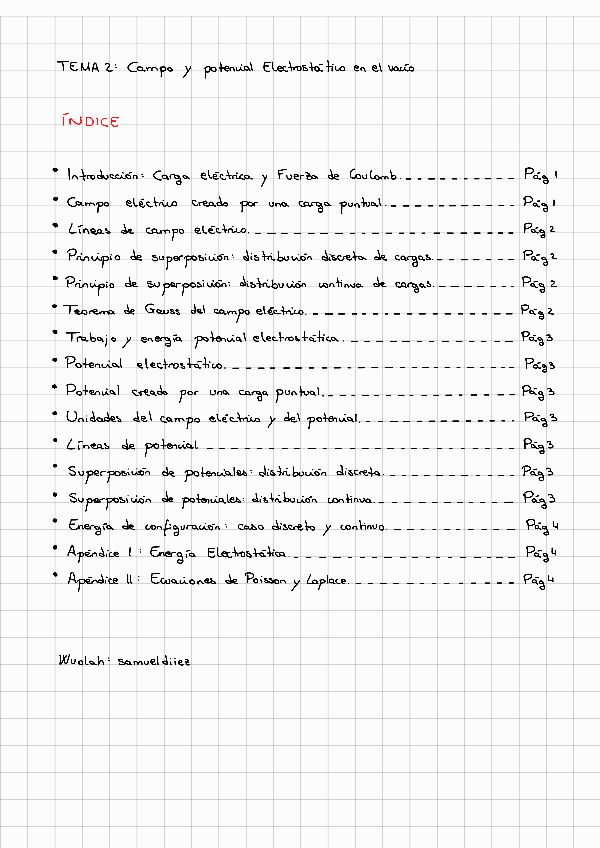 TEMA 2: Campo y potencial Electrostático en el vacío
ÍNDICE
• Introducción: Carga eléctrica y Fuerza de Coulomb. Pág 1
• Campo eléctrico creado por una carga puntual. Pág 1
• Líneas de campo eléctrico. Pág 2
• Principio de superposición: distribución discreta de cargas. Pág 2
• Principio de superposición: distribución continua de cargas. Pág 2
• Teorema de Gauss del campo eléctrico. Pág 2
• Trabajo y energía potencial electrostática. Pág 3
• Potencial electrostático. Pág 3
• Potencial creado por una carga puntual. Pág 3
• Unidades del campo eléctrico y del potencial. Pág 3
• Líneas de potencial Pág 3
• Superposición de potenciales: distribución discreta. Pág 3
• Superposición de potenciales: distribución continua. Pág 3
• Energía de configuración: caso discreto y continuo. Pág 4
• Apéndice I: Energía Electrostática. Pág 4
• Apéndice II: Ecuaciones de Poisson y Laplace. Pág 4
Wuolah: samueldiiez